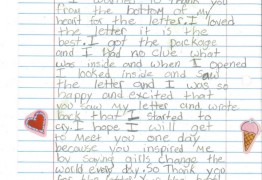 I wanted to thank you
from the bottom of my
heart for the letter. I loved
the letter it is the
best. I got the package
and I had no clue what
was inside and when I opened
I looked inside and saw
the letter and I was so
happy and excited that
you saw my letter and wrote
back that I started to
cry. I hope I will get
to meet you one day
because you inspired me
by saying girls change the
world every day. So Thank you